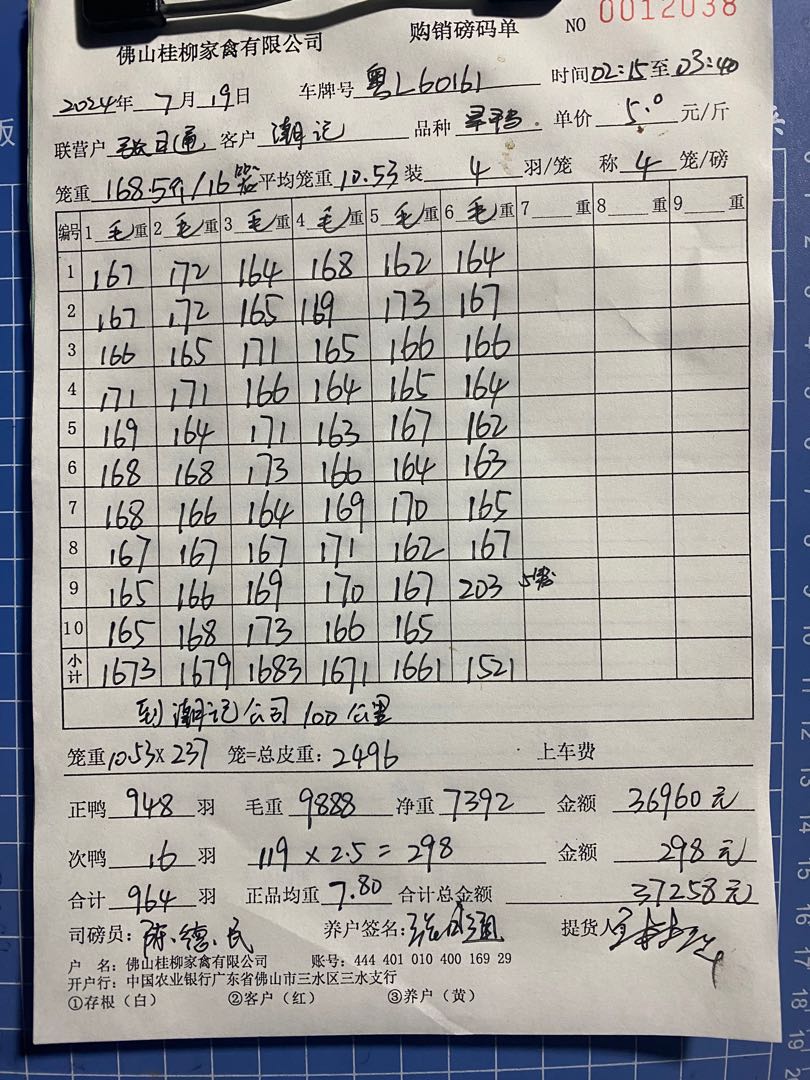 佛山桂柳家禽有限公司 购销磅码单 NO 0012038
2024年 7月 19日 车牌号 粤L60161 时间 02:15 至 03:40
联营户 客户 潮记 品种 单价 5.0 元/斤
笼重 168.5斤/16笼 平均笼重 10.53 装 4 羽/笼 称 4 笼/磅
编号 1 毛 重 2 毛 重 3 毛 重 4 毛 重 5 毛 重 6 毛 重 7 重 8 重 9 重
1 167 172 164 168 162 164
2 167 172 165 169 173 167
3 166 165 171 165 166 166
4 171 171 166 164 165 164
5 169 164 171 163 167 162
6 168 168 173 166 164 163
7 168 166 164 169 170 165
8 167 167 167 171 162 167
9 165 166 169 170 167 203 5笼
10 165 168 173 166 165
小计 1673 1679 1683 1671 1661 1521
到潮记公司 100公里
笼重 10.53 × 237 笼=总皮重: 2496 上车费
正鸭 948 羽 毛重 9888 净重 7392 金额 36960元
次鸭 16 羽 119 × 2.5 = 298 金额 298元
合计 964 羽 正品均重 7.80 合计总金额 37258元
司磅员: 陈德民 养户签名: 提货人
户 名: 佛山桂柳家禽有限公司 账号: 444 401 010 400 169 29
开户行: 中国农业银行广东省佛山市三水区三水支行
①存根（白） ②客户（红） ③养户（黄）